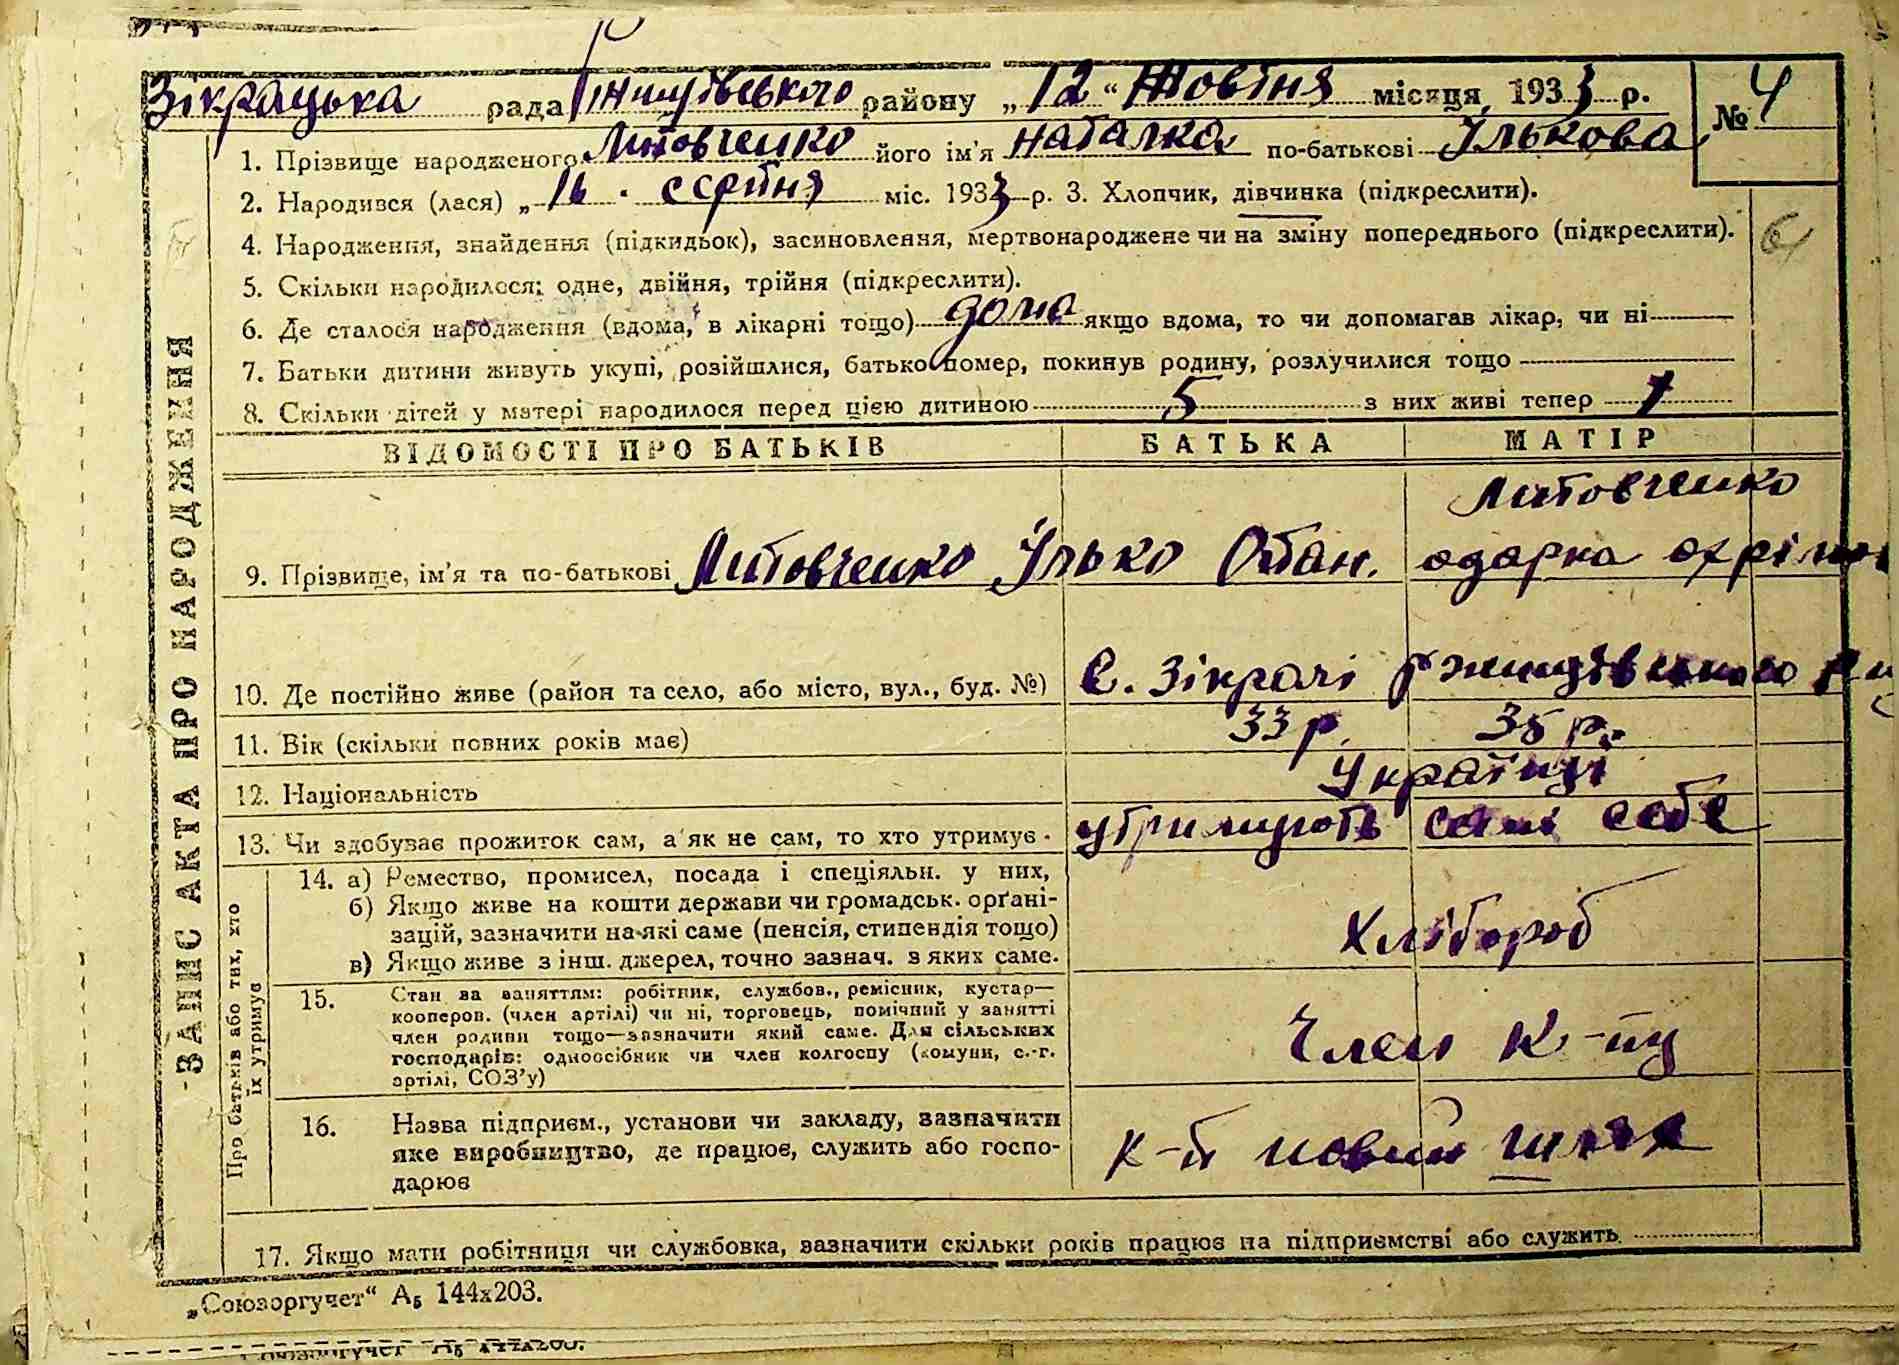 Зікрацька рада Ржищівського району „12“ Жовтня місяця 1933 р. № 4
1. Прізвище народженого Литовченко його ім'я Наталка по-батькові Ількова
2. Народився (лася) „16 серпня міс. 1933 р. 3. Хлопчик, дівчинка (підкреслити).
4. Народження, знайдення (підкидьок), засиновлення, мертвонароджене чи на зміну попереднього (підкреслити).
5. Скільки народилося: одне, двійня, трійня (підкреслити).
6. Де сталося народження (вдома, в лікарні тощо) дома якщо вдома, то чи допомагав лікар, чи ні
7. Батьки дитини живуть укупі, розійшлися, батько помер, покинув родину, розлучилися тощо
8. Скільки дітей у матері народилося перед цією дитиною 5 з них живі тепер
ВІДОМОСТІ ПРО БАТЬКІВ БАТЬКА МАТІР
Литовченко
9. Прізвище, ім'я та по-батькові Литовченко Ілько Опан. одарка охрімо
10. Де постійно живе (район та село, або місто, вул., буд. №) с. Зікрачі Ржищівського
11. Вік (скільки повних років має) 33 р. 35 р.
12. Національність Українці
13. Чи здобуває прожиток сам, а як не сам, то хто утримує утримують самі себе
ЗАПИС АКТА ПРО НАРОДЖЕННЯ
Про батьків або тих, хто
їх утримує
14. а) Ремество, промисел, посада і спеціяльн. у них,
б) Якщо живе на кошти держави чи громадськ. орґані-
зацій, зазначити на які саме (пенсія, стипендія тощо)
в) Якщо живе з інш. джерел, точно зазнач. з яких саме.
Хлібороб
15. Стан за заняттям: робітник, службов., ремісник, кустар—
кооперов. (член артілі) чи ні, торговець, помічний у занятті
член родини тощо—зазначити який саме. Для сільських
господарів: одноосібник чи член колгоспу (комуни, с.-г.
артілі, СОЗ'у)
Член к-пу
16. Назва підприєм., установи чи закладу, зазначити
яке виробництво, де працює, служить або госпо-
дарює
к-п новий шлях
17. Якщо мати робітниця чи службовка, зазначити скільки років працює на підприємстві або служить
„Союзоргучет“ А5 144х203.